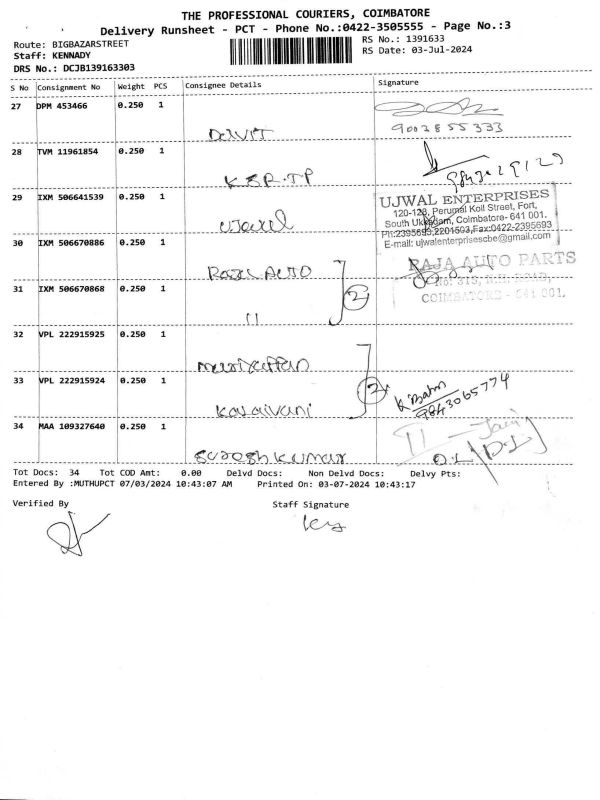 THE PROFESSIONAL COURIERS, COIMBATORE
Delivery Runsheet - PCT - Phone No.:0422-3505555 - Page No.:3
Route: BIGBAZARSTREET
RS No.: 1391633
Staff: KENNADY
RS Date: 03-Jul-2024
DRS No.: DCJB139163303
S No Consignment No Weight PCS Consignee Details Signature
27 DPM 453466 0.250 1
9002855333
28 TVM 11961854 0.250 1
KSR.TP
29 IXM 506641539 0.250 1
UJWAL ENTERPRISES
120-123, Perumal Koil Street, Fort,
South Ukkadam, Coimbatore- 641 001.
Ph:2395693,2201593,Fax:0422-2395693
E-mail: ujwalenterprisescbe@gmail.com
30 IXM 506670886 0.250 1
AUTO
RAJA AUTO PARTS
No. 315, N.H. ROAD,
COIMBATORE - 641 001.
31 IXM 506670868 0.250 1
11
2
32 VPL 222915925 0.250 1
mariyappan
33 VPL 222915924 0.250 1
2
K Babu
9843065774
Kalaivani
34 MAA 109327640 0.250 1
Jain
D.L
Suresh kumar
Tot Docs: 34 Tot COD Amt: 0.00 Delvd Docs: Non Delvd Docs: Delvy Pts:
Entered By :MUTHUPCT 07/03/2024 10:43:07 AM Printed On: 03-07-2024 10:43:17
Verified By Staff Signature